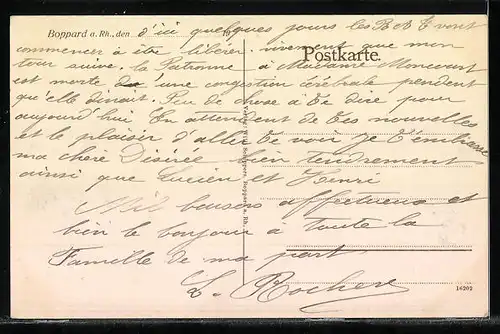 Boppard a. Rh., den 19
d'ici quelques jours les R A T vont
commencer à être libérer. vivement que mon
tour suive. la Patronne à Madame Moncourt
est morte d'une congestion cérébrale pendent
qu'elle dinait. Peu de chose a te dire pour
aujourd'hui En attendent de tes nouvelles
et le plaisir d'aller te voir Je t'embrasse
ma chère Désirée bien tendrement
ainsi que Lucien et Henri
Mil baisers affectueux et
bien le bonjour a toute la
Famille de ma part
L. Rocher
Postkarte.
Boppard a. Rh.
16202